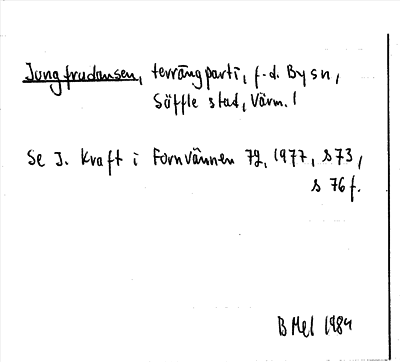 Jungfrudansen, terrängparti, f.d. By sn,
Säffle stad, Värm. l
Se J. Kraft i Fornvännen 72, 1977, s 73,
s 76 f.
B Mel 1984